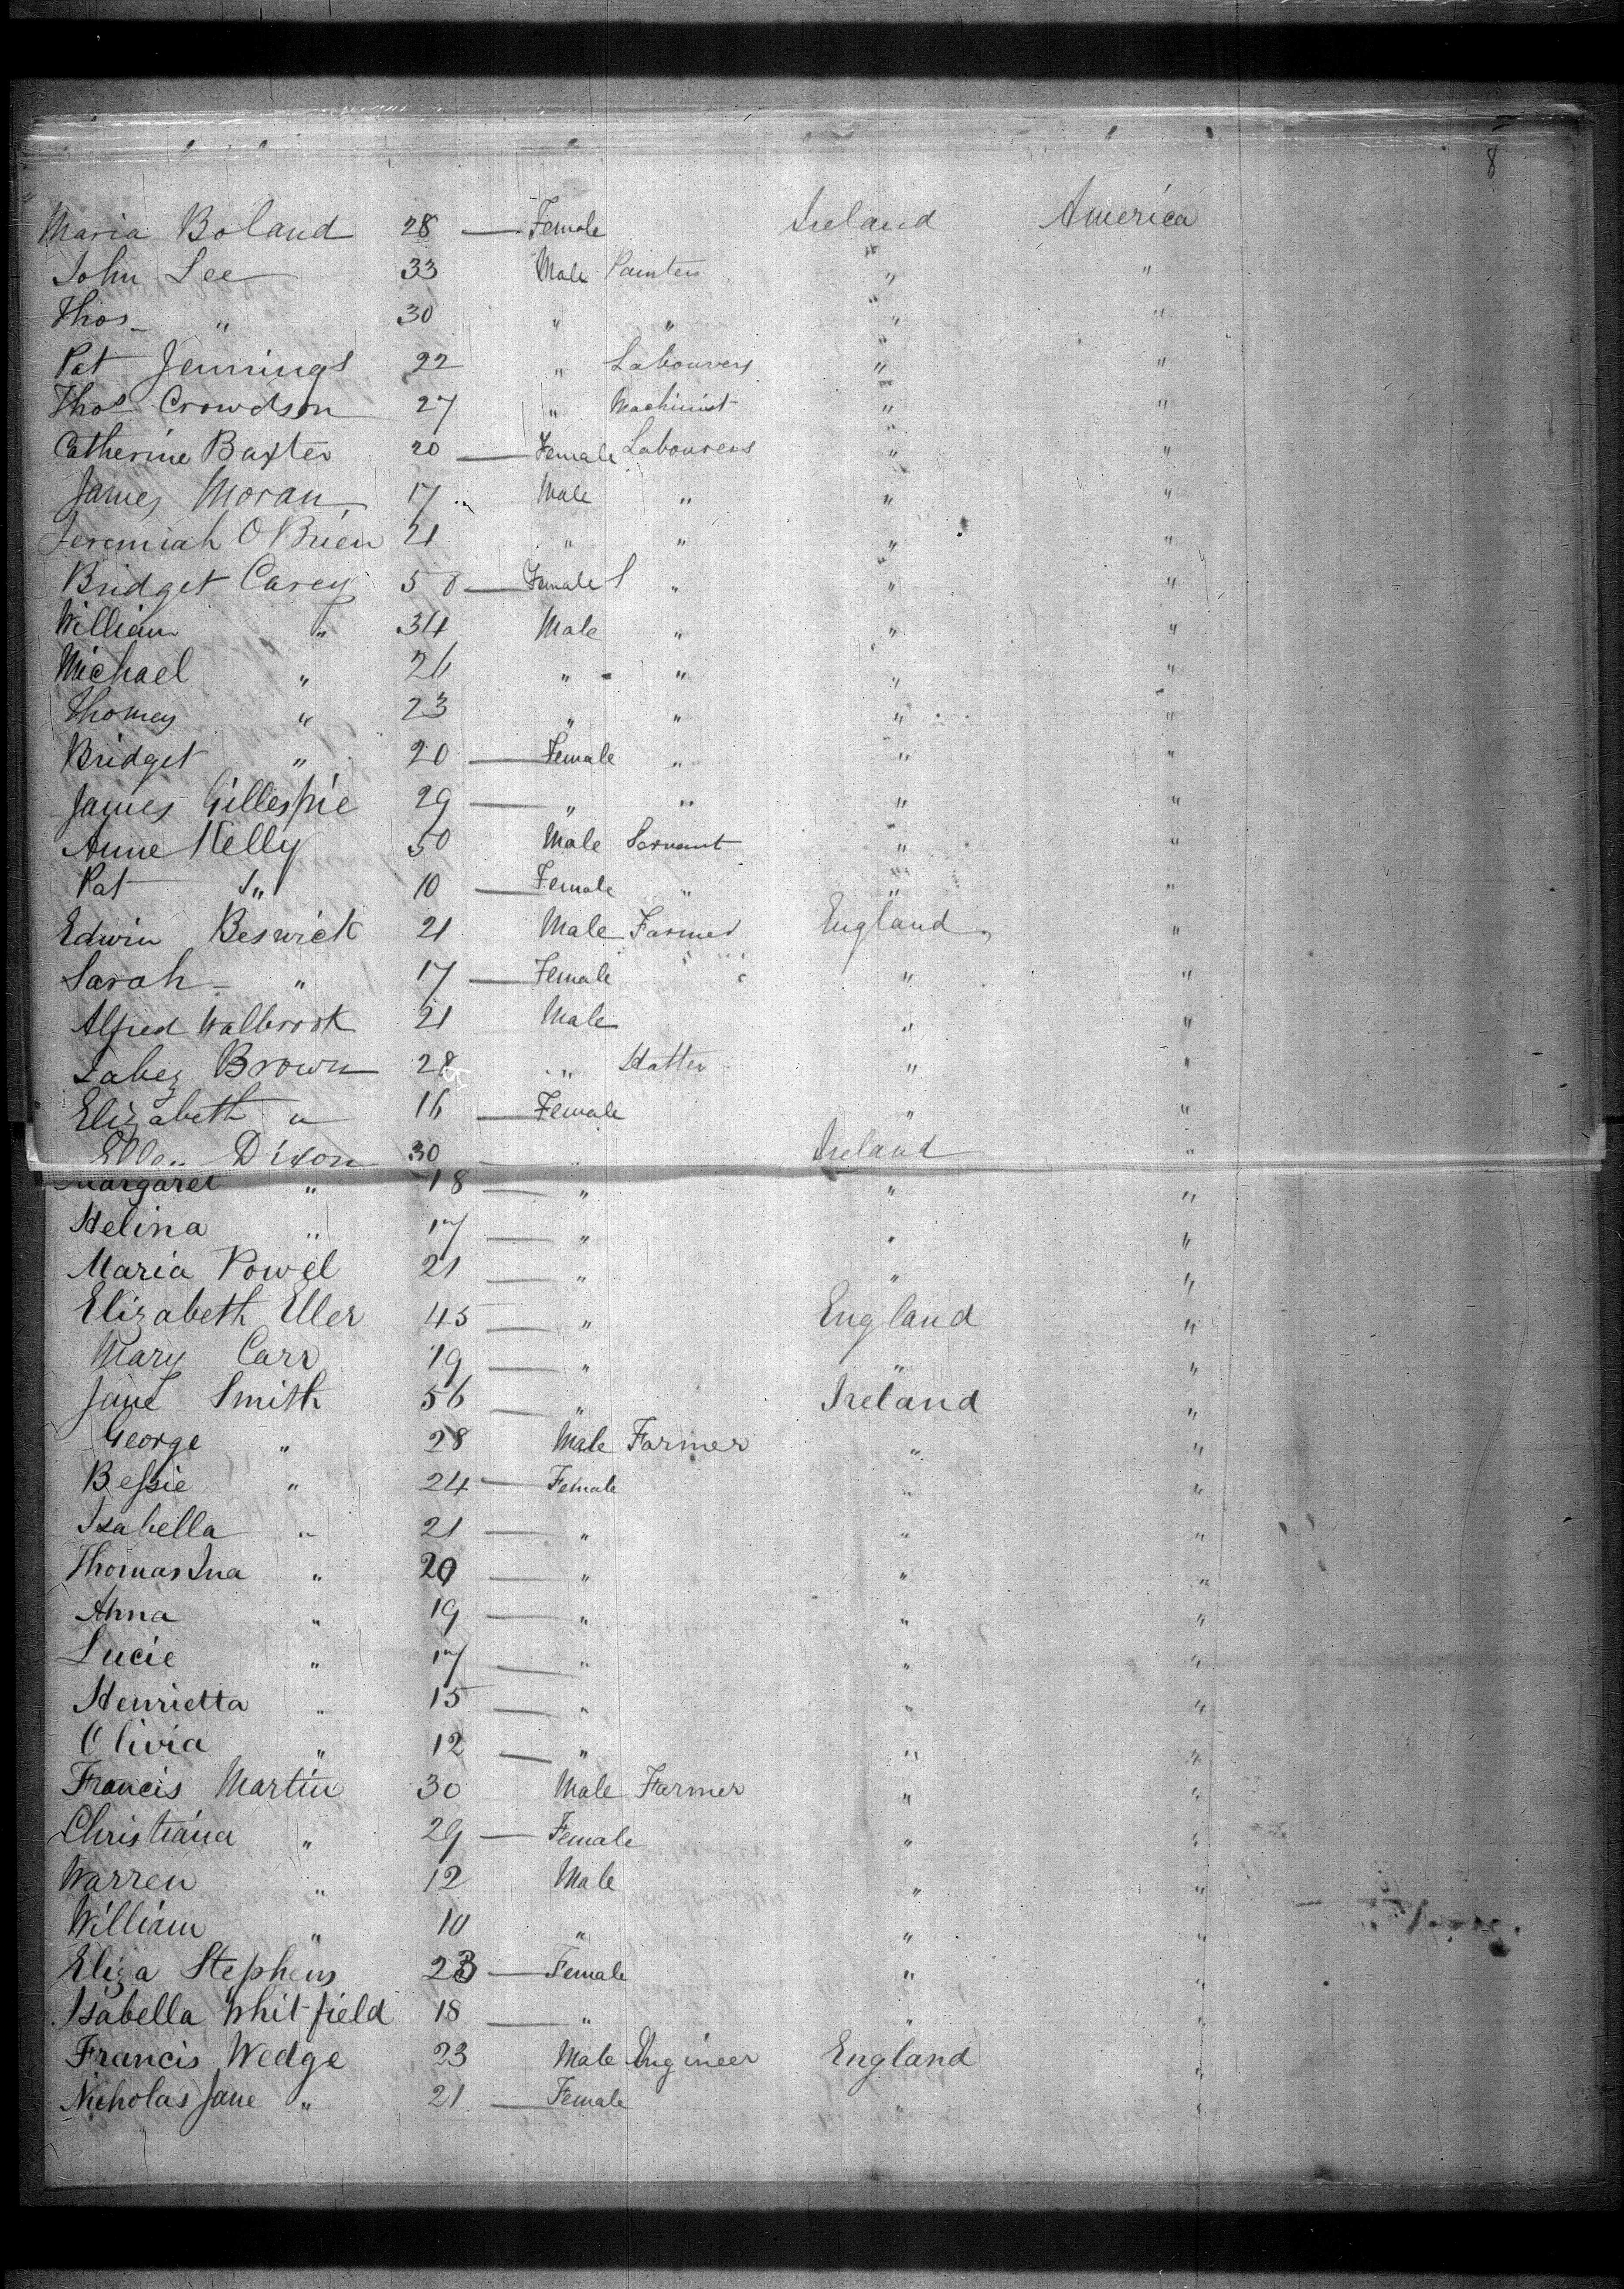 8
Maria Boland 28 — Female Ireland America
John Lee 33 Male Painters " "
Thos " 30 " " " "
Pat Jennings 22 " Labourers " "
Thos Crowdson 27 " Machinist " "
Catherine Baxter 20 — Female Labourers " "
James Moran 17 Male " " "
Jeremiah O Brien 21 " " " "
Bridget Carey 50 — Female " " "
William " 34 Male " " "
Michael " 26 " " " "
Thomey " 23 " " " "
Bridget " 20 — Female " " "
James Gillespie 29 — " " " "
Anne Kelly 50 Male Servant " "
Pat " 10 — Female " " "
Edwin Beswick 21 Male Farmer England "
Sarah " 17 — Female " "
Alfred Walbrook 21 Male " "
Jabez Brown 28 " Hatter " "
Elizabeth " 16 — Female " "
Ellen Dixon 30 — " Ireland "
Margaret " 18 — " " "
Helina " 17 — " " "
Maria Powel 21 — " " "
Elizabeth Eller 45 — " England "
Mary Carr 19 — " " "
Jane Smith 56 — " Ireland "
George " 28 Male Farmer " "
Bessie " 24 — Female " "
Isabella " 21 — " " "
Thomas Ina " 20 — " " "
Anna " 19 — " " "
Lucie " 17 — " " "
Henrietta " 15 — " " "
Olivia " 12 — " " "
Francis Martin 30 Male Farmer " "
Christiana " 29 — Female " "
Warren " 12 Male " "
William " 10 " " "
Eliza Stephens 23 — Female " "
Isabella Whitfield 18 — " " "
Francis Wedge 23 Male Engineer England "
Nicholas Jane " 21 — Female " "